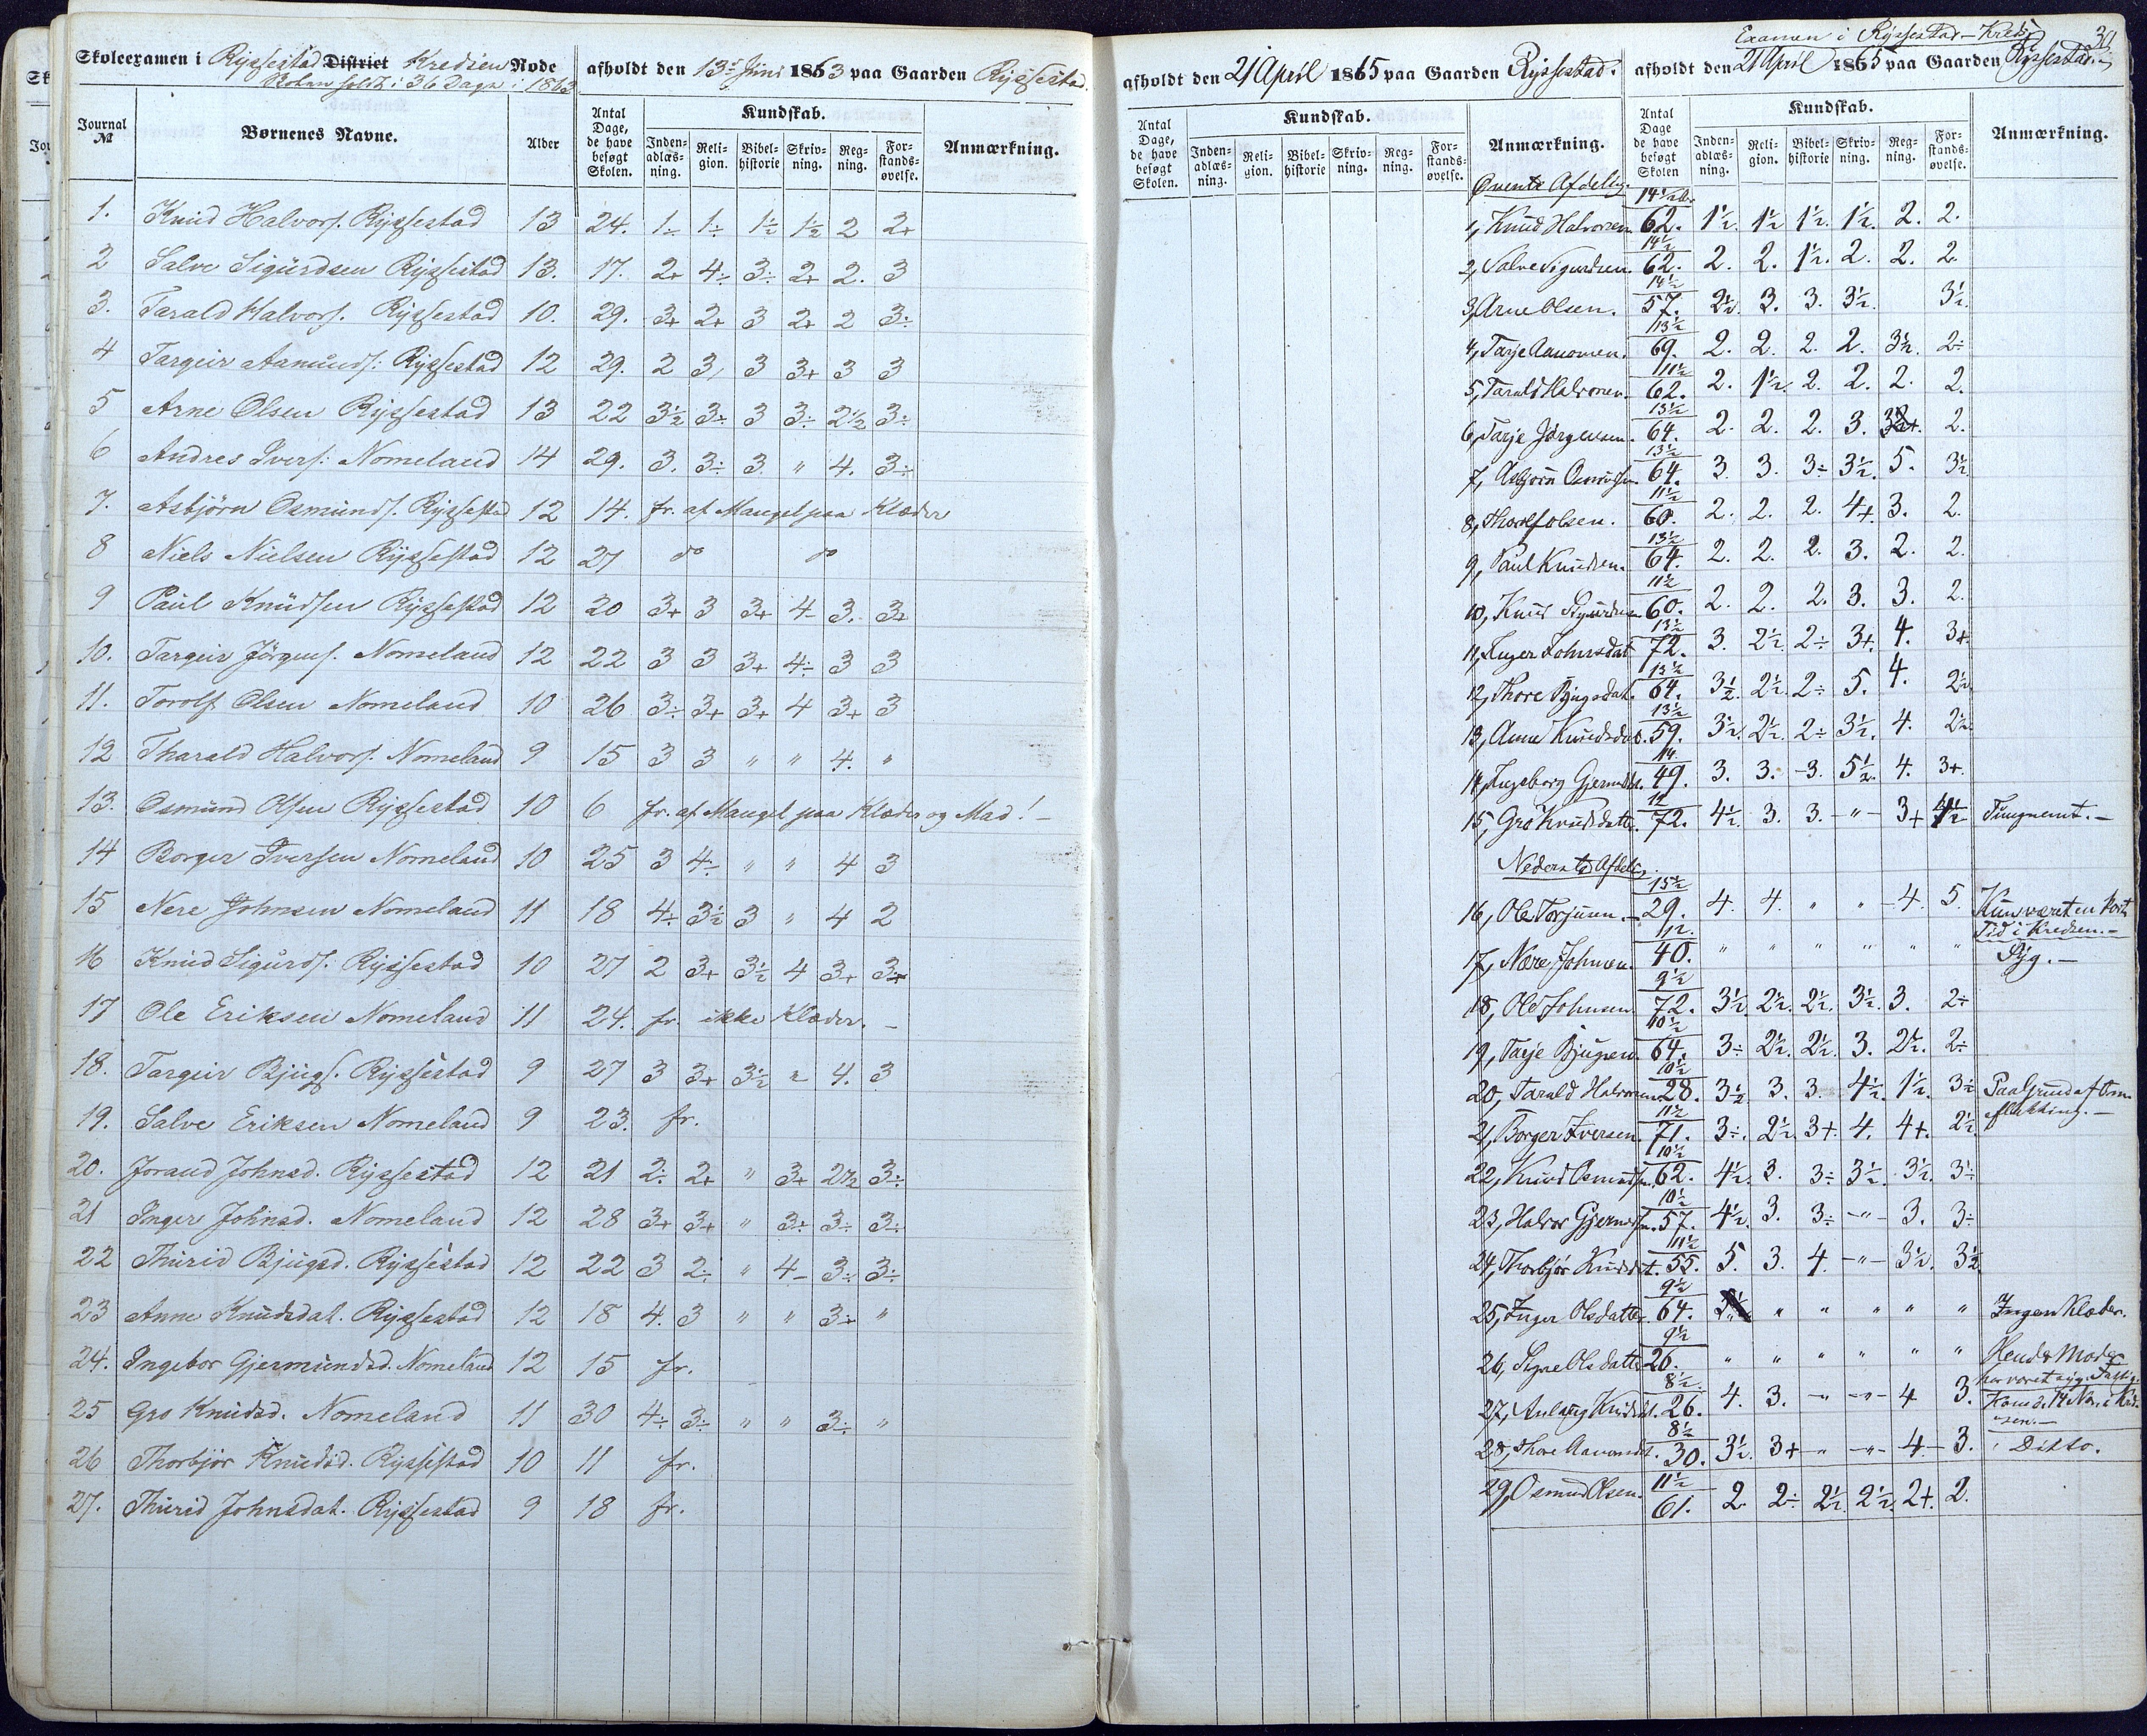 Skoleexamen i Ryssestad District Kredsen Rode
Skolen holdt i 36 Dage i 1863
afholdt den 13de Juni 1863 paa Gaarden Ryssestad.
Journal № Børnenes Navne. Alder Antal Dage, de have besøgt Skolen. Kundskab. Anmærkning.
Inden-adlæs-ning. Reli-gion. Bibel-historie Skriv-ning. Reg-ning. For-stands-øvelse.
1. Knud Halvors. Ryssestad 13 24. 1÷ 1÷ 1½ 1½ 2 2+
2 Salve Sigurdsen Ryssestad 13. 17. 2+ 4÷ 3÷ 2+ 2. 3
3. Tarald Halvors. Ryssestad 10. 29. 3+ 2+ 3 2+ 2 3÷
4 Targeir Aamunds: Ryssestad 12 29. 2 3 3 3+ 3 3
5 Arne Olsen Ryssestad 13 22 3½ 3÷ 3 3÷ 2½ 3÷
6 Andres Ivers: Nomeland 14 29. 3. 3÷ 3 " 4. 3÷
7. Asbjörn Osmunds. Ryssestad 12 14. fr. af Mangel paa Klæder
8 Niels Nielsen Ryssestad 12 27 do do
9 Paul Knudsen Ryssestad 12 20 3+ 3 3+ 4- 3. 3+
10. Targeir Jörgens. Nomeland 12 22 3 3 3+ 4÷ 3 3
11. Torolf Olsen Nomeland 10 26 3÷ 3+ 3+ 4 3+ 3
12 Tharald Halvors. Nomeland 9 15 3 3 " " 4. "
13. Osmund Olsen Ryssestad 10 6 fr. af Mangel paa Klæder og Mad! -
14 Borger Iversen Nomeland 10 25 3 4÷ " " 4 3
15 Nere Johnsen Nomeland 11 18 4÷ 3½ 3 " 4 2
16 Knud Sigurds: Ryssestad 10 27 2 3+ 3½ 4 3+ 3+
17 Ole Eriksen Nomeland 11 24. fr. ikke Klæder. -
18. Targeir Bjugs. Ryssestad 9 27 3 3+ 3½ " 4. 3
19. Salve Eriksen Nomeland 9 23. fr.
20. Jorand Johnsd. Ryssestad 12 21 2÷ 2+ " 3+ 2½ 3÷
21 Inger Johnsd. Nomeland 12 28 3+ 3+ " 3÷ 3÷ 3÷
22 Thurid Bjugsd. Ryssestad 12 22 3 2÷ " 4- 3÷ 3÷
23 Anne Knudsdat. Ryssestad 12 18 4. 3 " " 3÷ "
24. Ingebor Gjermundsd. Nomeland 12 15 fr.
25 Gro Knudsd. Nomeland 11 30 4÷ 3÷ " " 3÷ "
26 Thorbjör Knudsd. Ryssestad 10 11 fr.
27. Thurid Johnsdat. Ryssestad 9 18 fr.
Examen i Ryssestad-Kreds
30
afholdt den 21 April 1865 paa Gaarden Ryssestad.
afholdt den 21 April 1865 paa Gaarden Ryssestad.
Antal Dage, de have besøgt Skolen. Kundskab. Anmærkning.
Inden-adlæs-ning. Reli-gion. Bibel-historie Skriv-ning. Reg-ning. For-stands-øvelse.
Antal Dage de have besøgt Skolen Kundskab. Anmærkning.
Inden-adlæs-ning. Reli-gion. Bibel-historie Skriv-ning. Reg-ning. For-stands-øvelse.
Øverste Afdelig.
1, Knud Halvorsen 14½ 62. 1½. 1½ 1½. 1½. 2. 2.
2, Salve Sigurdsen. 14½ 62. 2. 2. 1½. 2. 2. 2.
3, Arne Olsen. 14½ 57. 2½. 3. 3. 3½. 3½.
4, Tarje Aanonsen. 13½ 69. 2. 2. 2. 2. 3½. 2÷
5, Tarald Halvorsen. 11½ 62. 2. 1½. 2. 2. 2. 2.
6, Tarje Jørgensen. 13½ 64. 2. 2. 2. 3. 2.
7, Asbjørn Osmundsen 13½ 64. 3. 3. 3÷ 3½. 5. 3½
8, Thorolf Olsen. 11½ 60. 2. 2. 2. 4+. 3. 2.
9, Paul Knudsen. 13½ 64. 2. 2. 2. 3. 2. 2.
10, Knud Sigurdsen 11½ 60. 2. 2. 2. 3. 3. 2.
11, Inger Johnsdat 13½ 72. 3. 2½. 2÷ 3+. 4. 3+
12, Thore Bjugsdat. 13½ 64. 3½. 2½. 2÷ 5. 4. 2½
13, Anne Knudsdat. 13½ 59. 3½. 2½. 2÷ 3½. 4. 2½
14, Ingeborg Gjermdt. 14 49. 3. 3. -3. 5½. 4. 3+.
15, Gro Knudsdatter. 12 72. 4½. 3. 3. - " - 3+ 4½ Tungnemt. -
Nederste Afdelig.
16, Ole Torjusen. - 15½ 29. 4. 4. " " - 4. 5. Kun været en kort
Tid i Kredsen. -
17, Nære Johnsen. 12. 40. " " " " " " Syg. -
18, Ole Johnsen 9½ 72. 3½. 2½. 2½. 3½. 3. 2÷
19, Tarje Bjugsen. 10½ 64. 3÷ 2½. 2½. 3. 2½. 2÷
20, Tarald Halvorsen 10½ 28. 3½ 3. 3. 4½. 1½. 3÷ Paa Grund af Om-
flakking. -
21, Borger Iversen. 11½ 71. 3÷. 2½. 3+. 4. 4+. 2½.
22, Knud Osmundsen. 10½ 62. 4½. 3. 3÷ 3½. 3½. 3÷
23, Halvor Gjermdsen. 10½ 57. 4½. 3. 3÷ - " - 3. 3÷
24, Thorbjør Knudsdt. 11½ 55. 5. 3. 4. - " - 3½. 3½.
25, Inger Olsdatter. 9½ 64. " " " " " Ingen Klæder.
26, Signe Olsdatter 9½ 26. " " " " " " Hendes Moder
har været syg.
27, Anlaug Knudsdt. 8½. 26. 4. 3. - " - " - 4 3. Kom d. 14 Nov. i Kred-
sen. -
28, Thore Aanonsdt. 8½ 30. 3½. 3+ - " - " - 4 - 3. Ditto.
29, Osmund Olsen. 11½ 61. 2. 2÷ 2½. 2½. 2+. 2.